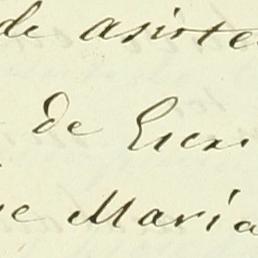 de asiste
de Escri
Maria